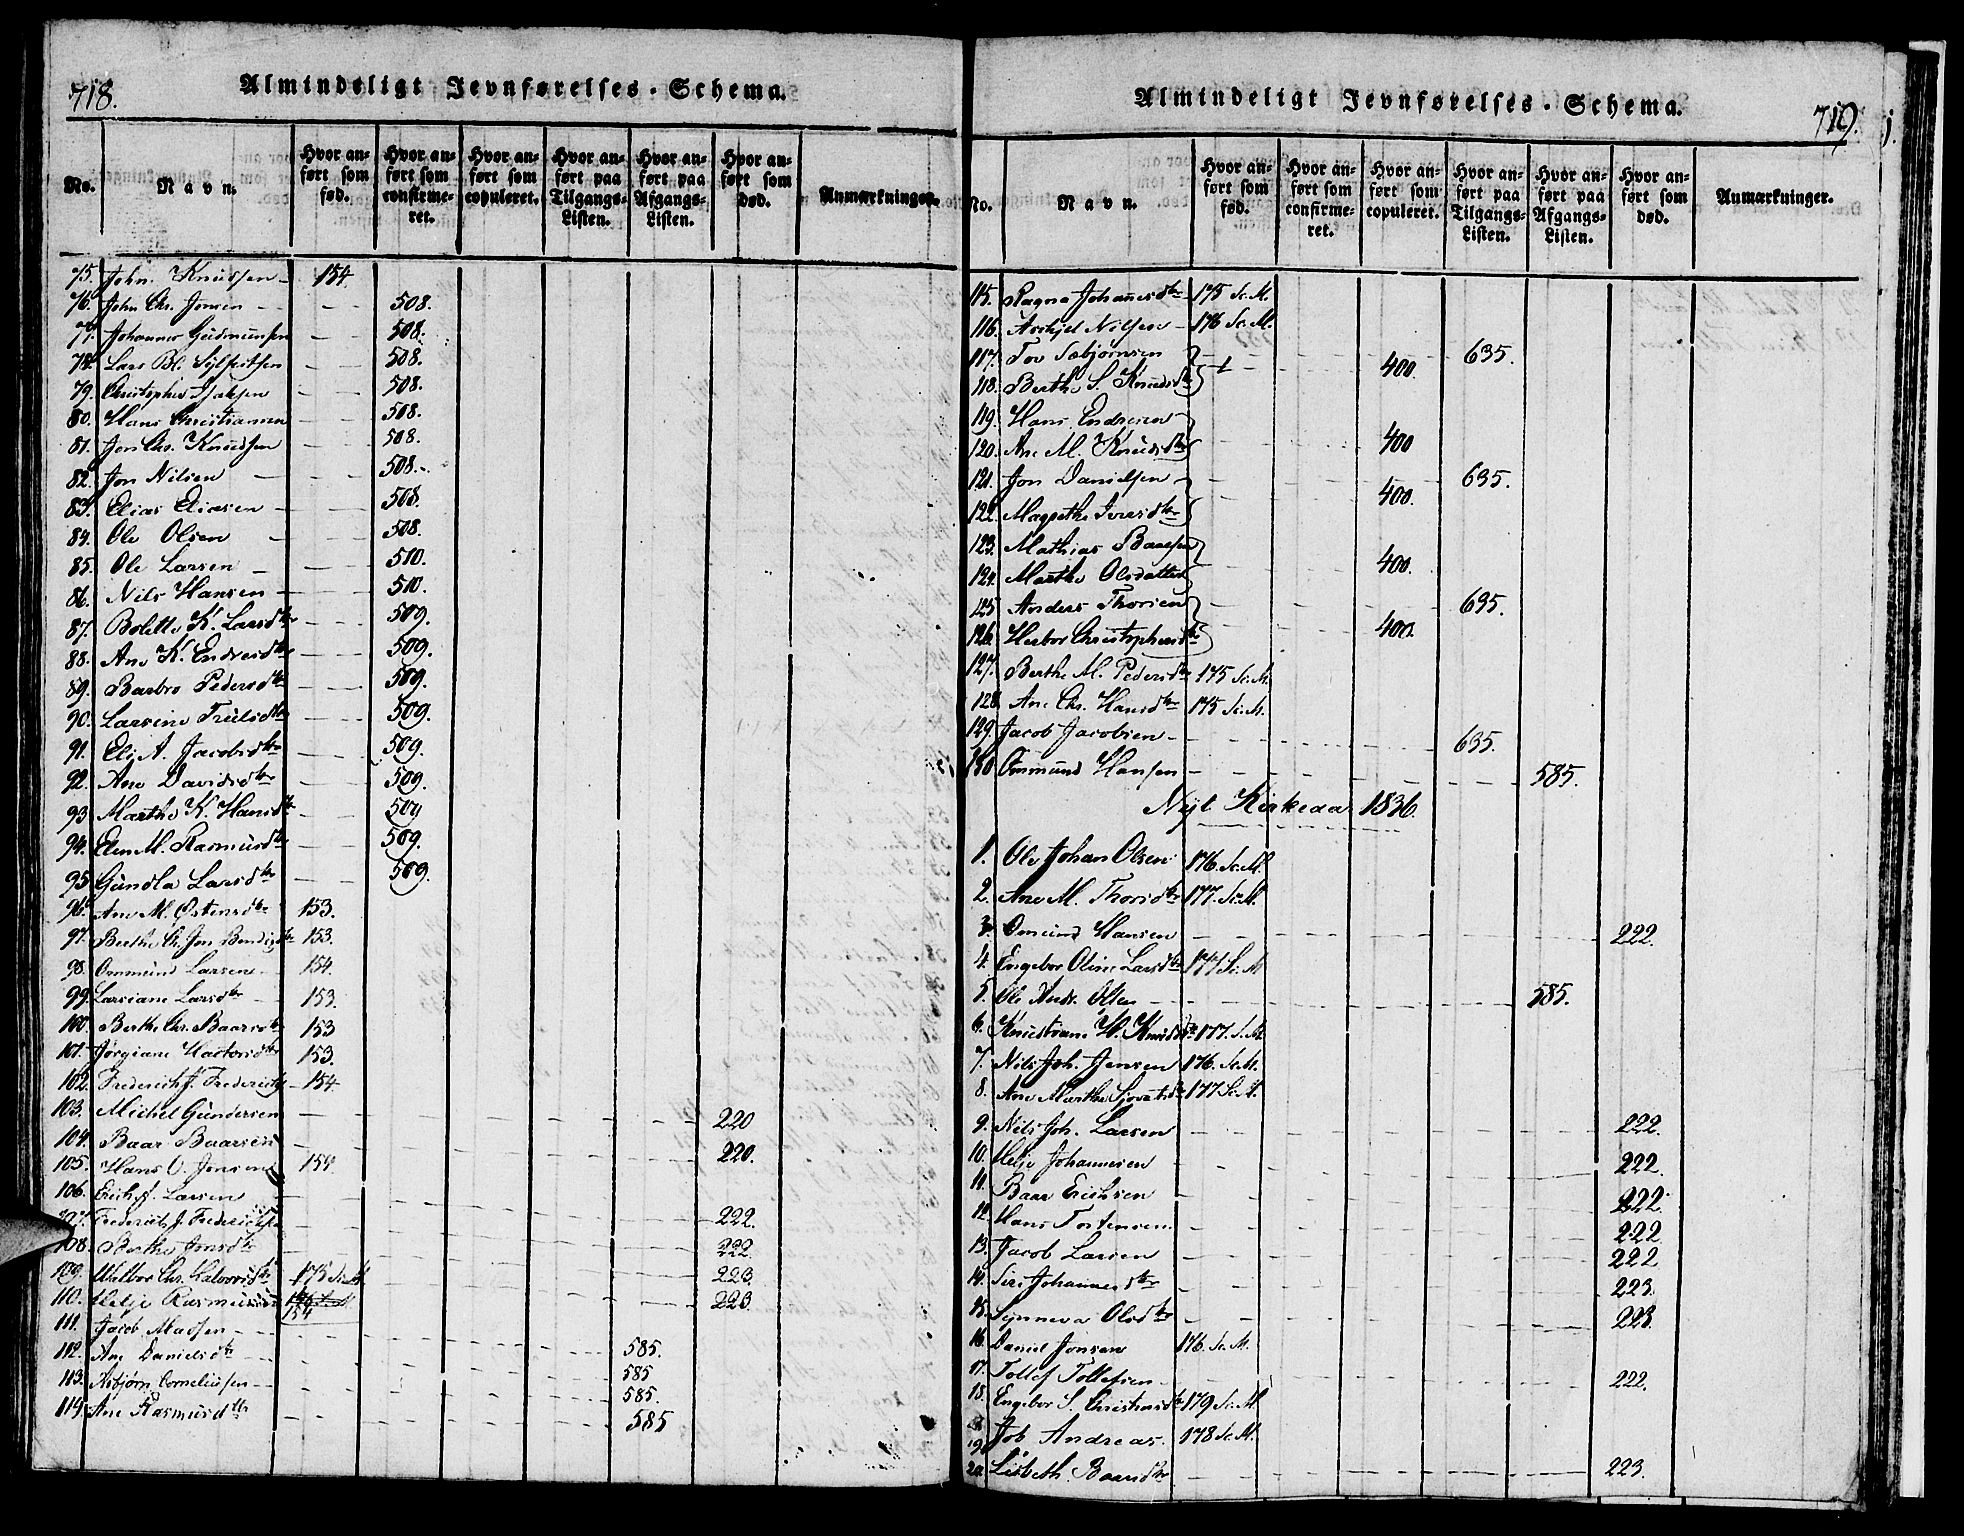 718.
Almindeligt Jevnførelses-Schema.
No. Navn. Hvor anført som fød. Hvor anført som confirmeret. Hvor anført som copuleret. Hvor anført paa Tilgangs-Listen. Hvor anført paa Afgangs-Listen. Hvor anført som død. Anmærkninger.
75. John Knudsen 154
76. John Chr. Jonsen 508.
77. Johannes Gudmunsen 508.
78. Lars Bl. 508.
79. Christopher 508.
80. Hans Christiansen 508.
81. Jon Chr. Knudsen 508.
82. Jon Nilsen 508.
83. Elias Eliasen 508.
84. Ole Olsen 508.
85. Ole Larsen 510.
86. Nils Hansen 510.
87. Bolette K. Larsdtr 509.
88. Ane K. Endresdtr 509.
89. Barbro Pedersdtr 509.
90. Larsine 509.
91. Eli A. Jacobsdtr 509.
92. Ane Davidsdtr 509.
93. Marthe K. Hansdtr 509
94. Elen M. Rasmusdtr 509.
95. Gundla Larsdtr 509.
96. Ane M. Østensdtr 153.
97. Berthe Ch. Jon 153.
98. Ommund Larsen 154.
99. Larsiane Larsdtr 153.
100. Berthe Chr. Baarsdtr 153
101. Jørgiane 153.
102. Frederich J. 154
103. Michel Gundersen 220
104. Baar Baarsen 220.
105. Hans O. Jonsen 154
106. Erich J. Larsen
107. Frederich J. 222.
108. Berthe Jonsdtr 222.
109. Walbor Chr. 175 Sc. M. 223.
110. Helje Rasmussen 154 223
111. Jacob
112. Ane Danielsdtr 585.
113. Asbjørn Corneliusen 585
114. Ane Rasmusdtr 585.
585
719.
Almindeligt Jevnførelses-Schema.
No. Navn. Hvor anført som fød. Hvor anført som confirmeret. Hvor anført som copuleret. Hvor anført paa Tilgangs-Listen. Hvor anført paa Afgangs-Listen. Hvor anført som død. Anmærkninger.
115. Ragna Johanesdtr 175 Sc. M.
116. Nilsen 176 Sc. M.
117. Tov Sæbjørnsen 635.
118. Berthe S. Knudsdtr 400
119. Hans Endresen
120. Ane M. Knudsdtr 400
121. Jon Danielsen 635.
122. Magrethe Iversdtr 400.
123. Mathias Baarsen
124. Marthe Olsdatter 400.
125. Anders Thorsen 635.
126. Herbor Christophersdtr 400.
127. Berthe M. Pedersdtr 175 Sc. M.
128. Ane Chr. Hansdtr 175 Sc. M.
129. Jacob Jacobsen 635.
130 Ommund Hansen 585.
Nyt Kirkeaar 1836.
1. Ole Johan Olsen 176 Sc. M.
2. Ane M. Thorsdtr 177. Sc. M.
3. Omund Hansen 222.
4. Engebor Oline Larsdtr 177 Sc. M
5. Ole Andr. Olsen 585.
6. H. 177. S. M.
7. Nils Joh. Jensen 176. Sc. M.
8. Ane Marthe 177 Sc. M.
9. Nils Joh. Larsen 222.
10. Helje Johannesen 222.
11. Baar Erichsen 222.
12. Hans Tostensen 222
13. Jacob Larsen 222
14. Siri Johannesdtr 223.
15. Synneva Olsdtr 223.
16. Daniel Jonsen 176. Sc. M.
17. Tollef Tollefsen 222.
18. Engebor S. 179 Sc. M.
19. Job Andreas. 178 Sc. M.
20. Lisbeth Baarsdtr 223.